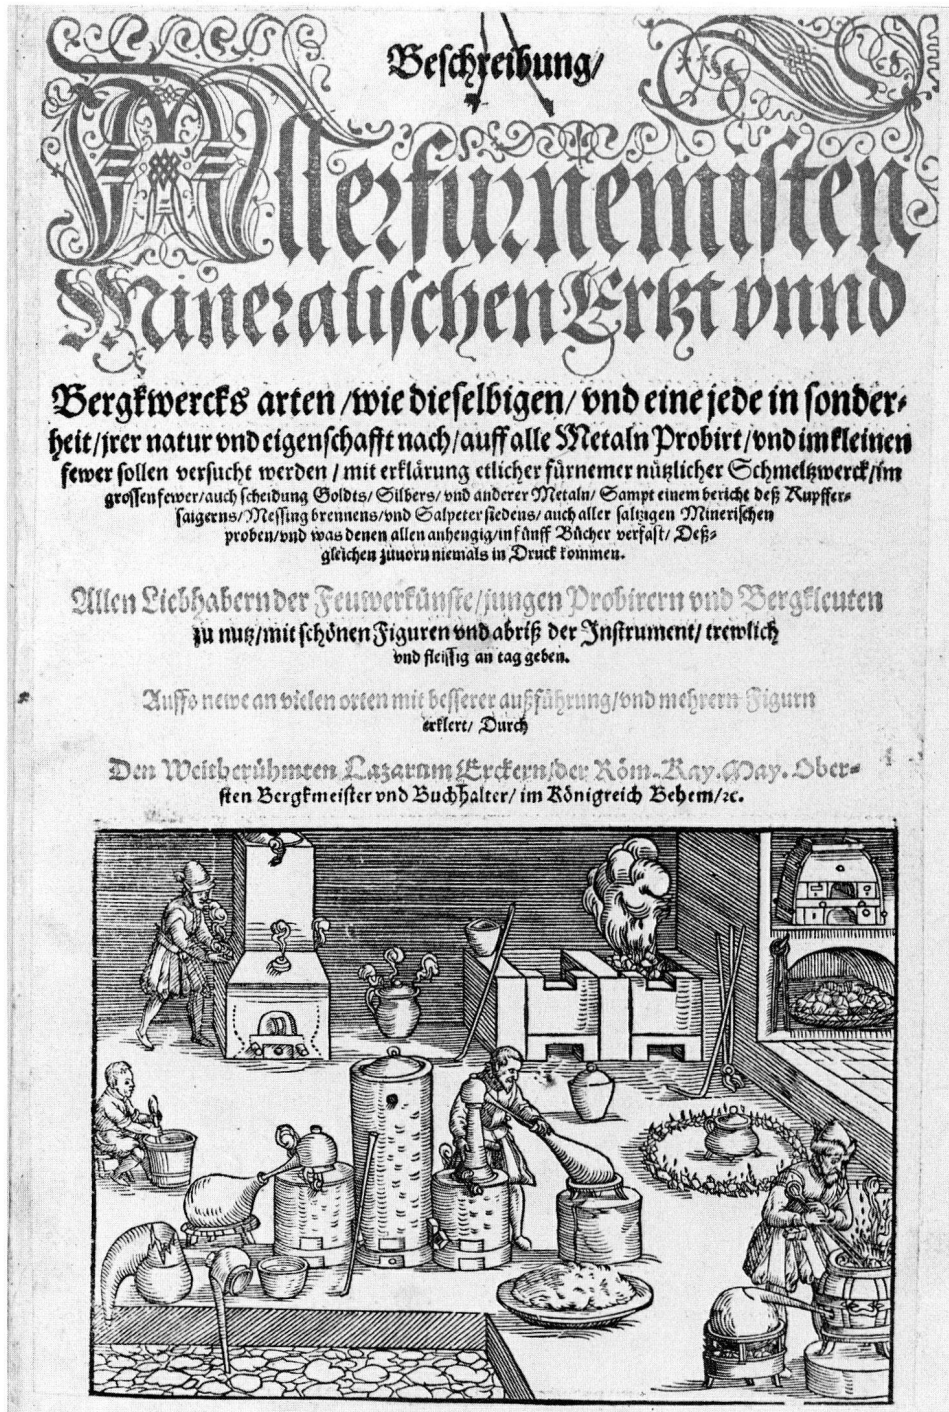 Beschreibung/
Allerfürnemisten
Mineralischen Ertzt vnnd
Bergkwercks arten/wie dieselbigen/vnd eine jede in sonder⸗
heit/jrer natur vnd eigenschafft nach/auff alle Metaln Probirt/vnd im kleinen
fewer sollen versucht werden/mit erklärung etlicher fürnemer nützlicher Schmeltzwerck/im
grossen fewer/auch scheidung Goldts/Silbers/vnd anderer Metaln/Sampt einem bericht deß Kupffer⸗
saigerns/Messing brennens/vnd Salpeter siedens/auch aller saltzigen Minerischen
proben/vnd was denen allen anhengig/in fünff Bücher verfast/Deß⸗
gleichen zuuorn niemals in Druck kommen.
Allen Liebhabern der Feuwerkünste/jungen Probirern vnd Bergkleuten
zu nutz/mit schönen Figuren vnd abriß der Instrument/trewlich
vnd fleissig an tag geben.
Auffs newe an vielen orten mit besserer außführung/vnd mehrern Figurn
erklert/Durch
Den Weitberühmten Lazarum Erckern/der Röm. Kay. May. Ober⸗
sten Bergkmeister vnd Buchhalter/im Königreich Behem/ꝛc.